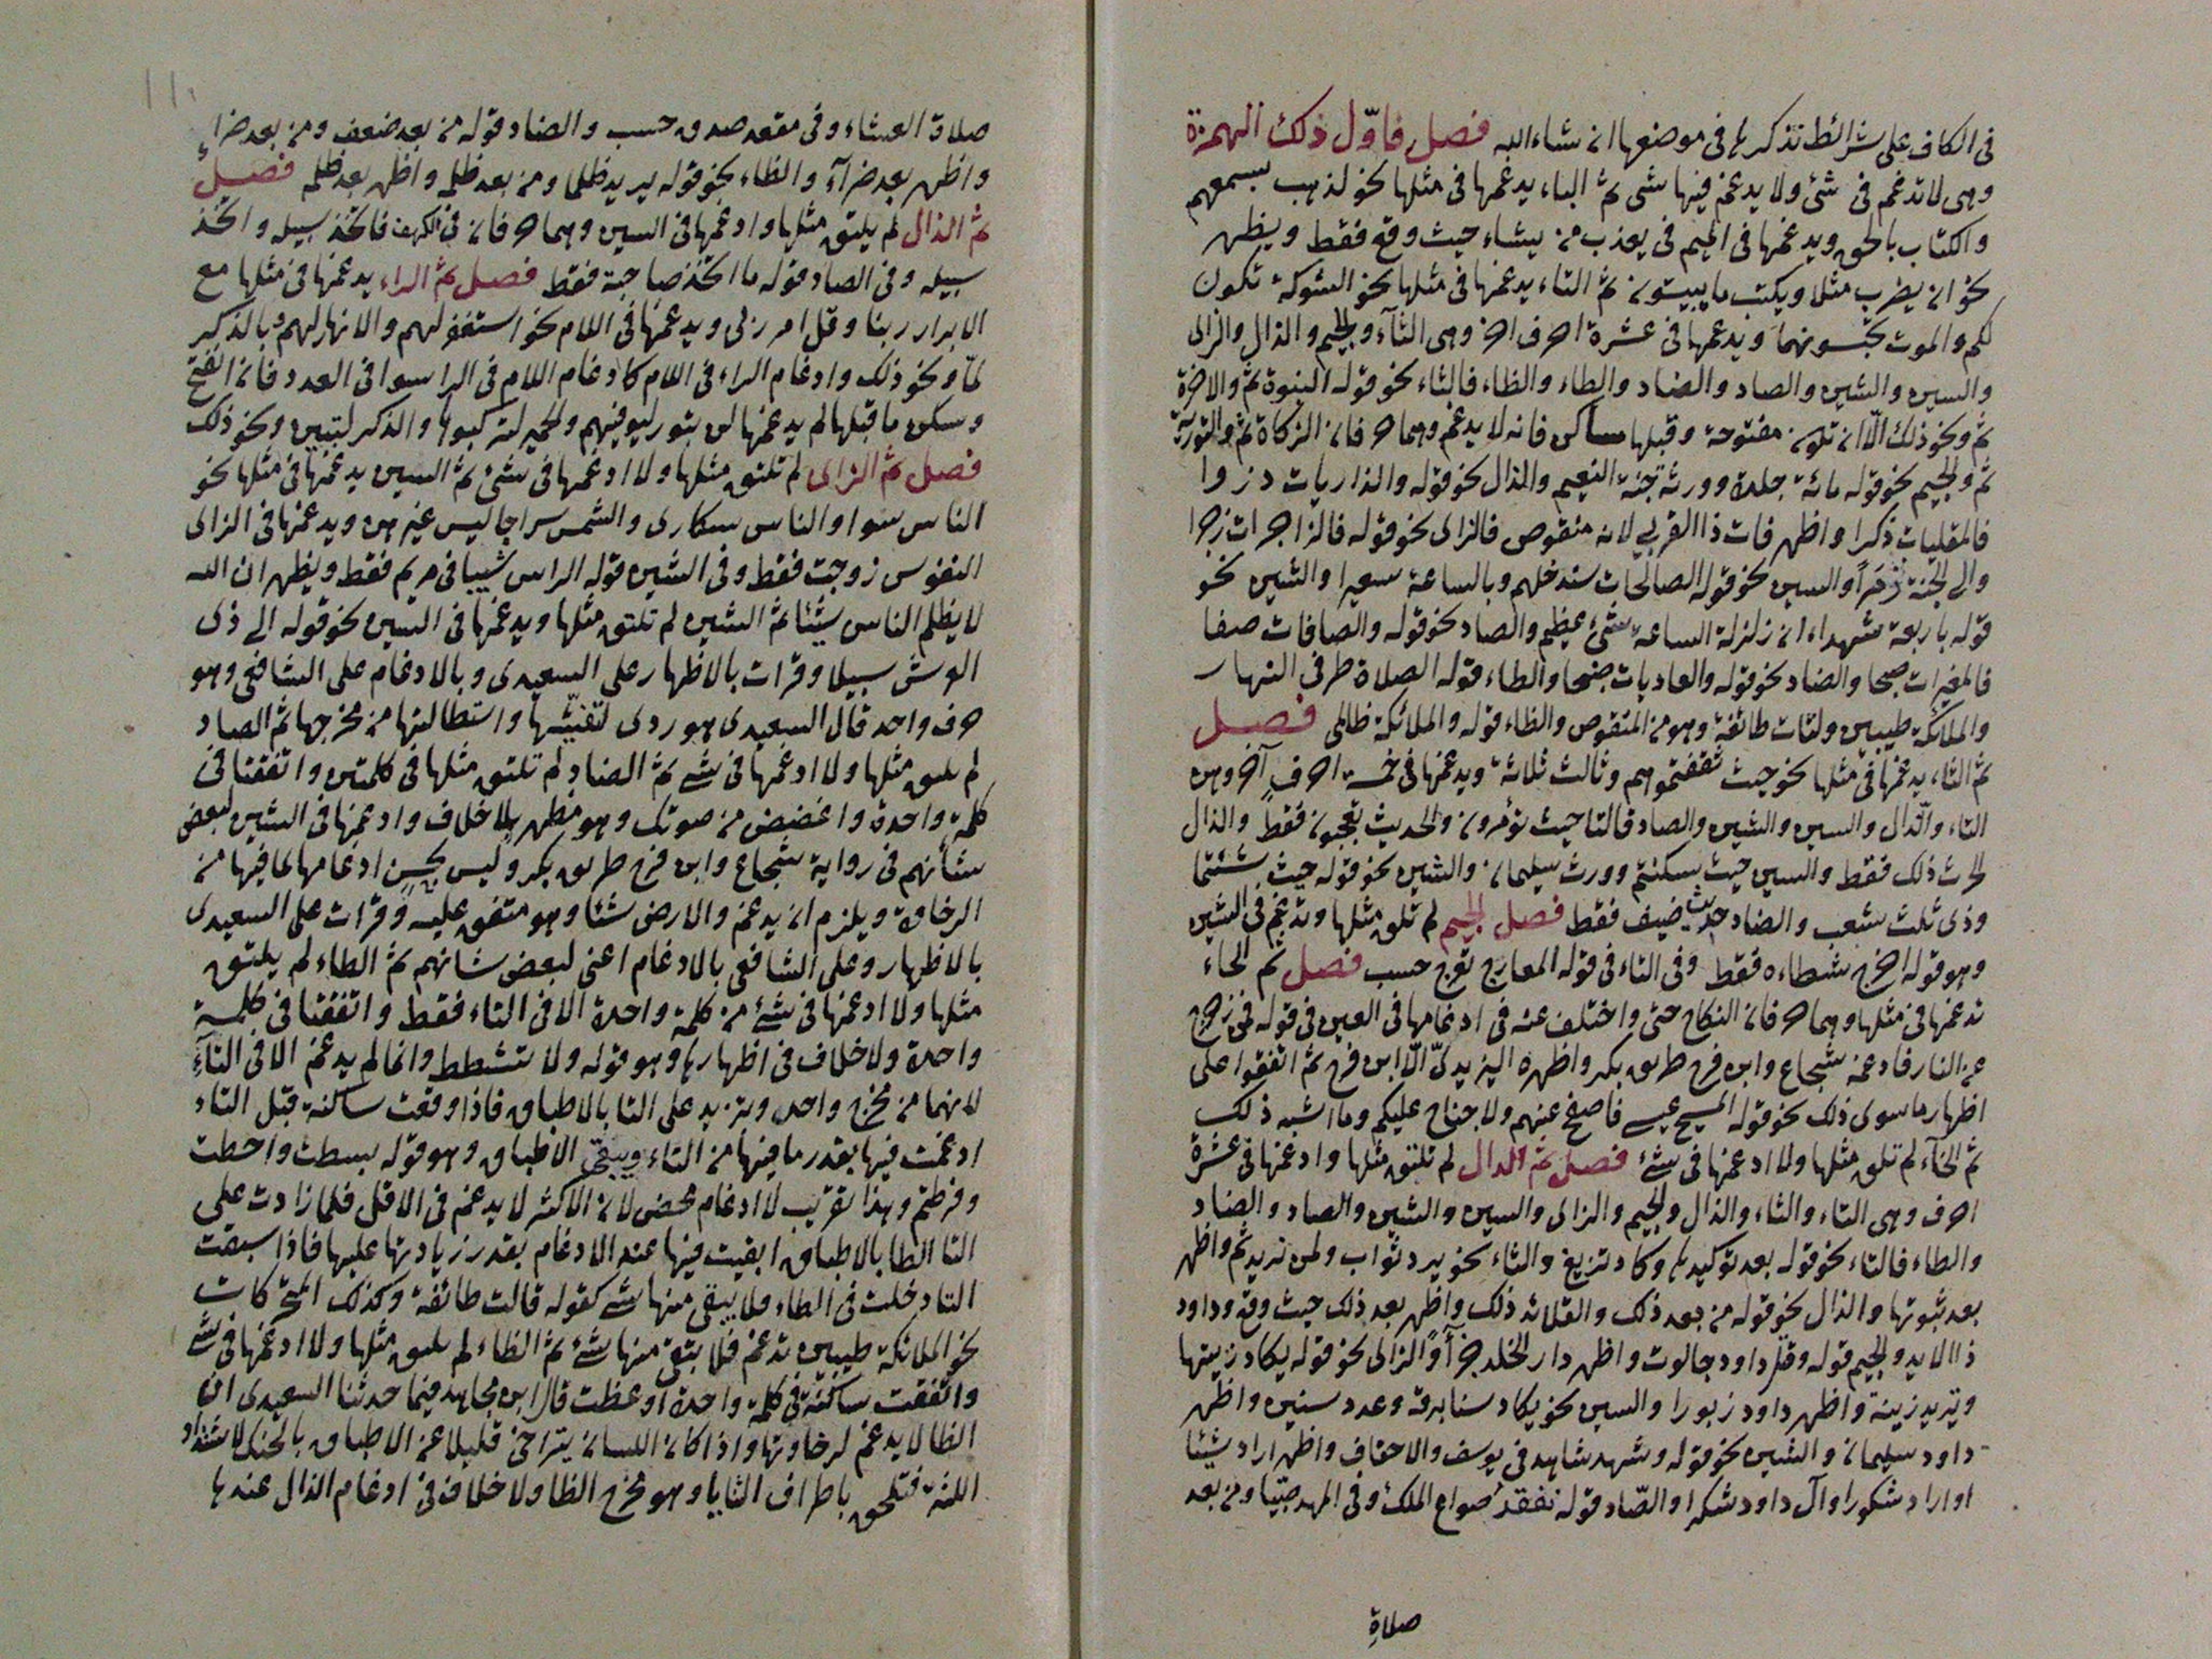 فى الكاف على شرائط تذكرها فى موضعها ان شاء الله فصل فاوّل ذلك الهمزة
وهى لا تدغم فى شئ ولا يدغم فيها شى ثم الباء يدغمها فى مثلها نحو لذهب بسمعهم
والكتاب بالحق ويدغمها فى الميم فى يعذب من يشاء حيث وقع فقط ويظهر
نحو ان يضرب مثلا ويكتب ما يبيتون ثم التاء يدغمها فى مثلها نحو الشوكة تكون
لكم والموت تحبسونهما ويدغمها فى عشرة احرف اخر وهى الثآء والجيم والذال والزاى
والسين والشين والصاد والضاد والطاء والظاء فالثاء نحو قوله النبوة ثم والاخرة
ثم ونحو ذلك الّا ان تكون مفتوحة وقبلها ساكن فانه لا يدغم وهما حرفان الزكاة ثم والتورية
ثم والجيم نحو قوله مائة جلدة وورثة جنة النعيم والذال نحو قوله والذاريات ذروا
فالملقيات ذكرا واظهر فات ذا القربى لانه منقوص فالزاى نحو قوله فالزاجرات زجرا
والى الجنة زُمَراً والسين نحو قوله الصالحات سندخلهم وبالساعة سعيرا والشين نحو
قوله باربعة شهداء ان زلزلة الساعة شئ عظيم والصاد نحو قوله والصافات صفا
فالمغيرات صبحا والضاد نحو قوله والعاديات ضبحا والطاء قوله الصلاة طرفى النهار
والملائكة طيبين ولتات طائفة وهو من المنقوص والظاء قوله والملائكة ظالمى فصل
ثم الثاء يدغمها فى مثلها نحو حيث ثقفتموهم وثالث ثلاثة ويدغمها فى خمسة احرف آخر وهن
التاء والذال والسين والشين والضاد فالتا حيث تؤمرون والحديث تعجبون فقط والذال
الحرث ذلك فقط والسين حيث سكنتم وورث سليمان والشين نحو قوله حيث شئتما
وذى ثلث شعب والضاد حديث ضيف فقط فصل الجيم لم تلق مثلها وتدغم فى الشين
وهو قوله اخرج شطاءه فقط وفى التاء فى قوله المعارج تعرج حسب فصل ثم الحاء
تدغمها فى مثلها وهما حرفان النكاح حتى واختلف عنه فى ادغامها فى العين فى قوله فمن زحزح
عن النار فادغمه شجاع وابن فرح طريق بكر واظهره اليزيدىّ الّا ابن فرح ثم اتفقوا على
اظهار ما سوى ذلك نحو قوله المسيح عيسى فاصفح عنهم ولا جناح عليكم وما اشبه ذلك
ثم الخآء لم تلق مثلها ولا ادغمها فى شئ فصل ثم الدال لم تلتق مثلها وادغمها فى عشرة
احرف وهى التاء والثاء والذال والجيم والزاى والسين والشين والصاد والضاد
والظاء فالتاء نحو قوله بعد توكيدها وكاد تزيغ والثاء نحو يرد ثواب ولمن نريد ثم واظهر
بعد ثبوتها والذال نحو قوله من بعد ذلك والقلائد ذلك واظهر بعد ذلك حيث وقع وداود
ذا الايد والجيم قوله وقتل داود جالوت واظهر دار الخلد جزآءً والزاى نحو قوله يكاد زيتها
وتريد زينة واظهر داود زبورا والسين نحو يكاد سنا برقه وعدد سنين واظهر
داود سليمان والشين نحو قوله وشهد شاهد فى يوسف والاحقاف واظهر اراد شيئا
او اراد شكورا وآل داود شكرا والصّاد قوله نفقد صواع الملك وفى المهد صبيا ومن بعد
صلاة
صلاة العشاء وفى مقعد صدق حسب والضاد قوله من بعد ضعف ومن بعد ضراء
واظهر بعد ضرآء والظاء نحو قوله يريد ظلما ومن بعد ظلمه واظهر بعد ظلمه فصل
ثم الذال لم يلتق مثلها وادغمها فى السين وهما حرفان فى الكهف فاتخذ سبيله واتخذ
سبيله وفى الصاد قوله ما اتخذ صاحبة فقط فصل ثم الراء يدغمها فى مثلها مع
الابرار ربنا وقل امر ربى ويدغمها فى اللام نحو استغفر لهم والانهار لهم وبالذكر
لمّا ونحو ذلك وادغام الراء فى اللام كادغام اللام فى الرا سوا فى العدد فان انفتح
وسكن ما قبلها لم يدغمها لن تبور ليوفيهم والحمير لتركبوها والذكر لتبين ونحو ذلك
فصل ثم الزاى لم تلتق مثلها ولا ادغمها فى شئ ثم السين يدغمها فى مثلها نحو
الناس سوا والناس سكارى والشمس سراجا ليس غيرهن ويدغمها فى الزاى
النفوس زوجت فقط وفى الشين قوله الراس شيبا فى مريم فقط ويظهر ان الله
لا يظلم الناس شيئا ثم الشين لم تلتق مثلها ويدغمها فى السين نحو قوله الى ذى
العرش سبيلا وقرات بالاظهار على السعيدى وبالادغام على الشافعى وهو
حرف واحد قال السعيدى هو ردى لتفشّيها واستطالتها من مخرجها ثم الصاد
لم يلتق مثلها ولا ادغمها فى شئ ثم الضاد لم تلتق مثلها فى كلمتين واتفقتا فى
كلمة واحدة واغضض من صوتك وهو مظهر بلا خلاف وادغمها فى الشين لبعض
شأنهم فى رواية شجاع وابن فرح طريق بكر وليس بحسن ادغامها لما فيها من
الرخاوة ويلزم ان يدغم والارض شئا وهو متفق عليه وقرات على السعيدى
بالاظهار وعلى الشافعى بالادغام اعنى لبعض شانهم ثم الطاء لم يلتق
مثلها ولا ادغمها فى شئ من كلمة واحدة الا فى التاء فقط واتفقتا فى كلمة
واحدة ولا خلاف فى اظهارها وهو قوله ولا تشطط وانما لم يدغم الا فى التآء
لانهما من مخرج واحد ويزيد على التا بالاطباق فاذا وقعت ساكنة قبل التاء
ادغمت فيها بقدر ما فيها من التاء ويبقى الاطباق وهو قوله بسطت واحطت
وفرطتم وهذا تقريب لا ادغام محض لان الاكثر لا يدغم فى الاقل فلما زادت على
التا الطا بالاطباق ابقيت فيها عند الادغام بقدر زيادتها عليها فاذا سبقت
التا دخلت فى الطاء فلا يبقى منها شئ كقوله قالت طائفة وكذلك المتحركات
نحو الملائكة طيبين تدغم فلا يبقى منها شئ ثم الظاء لم يلتق مثلها ولا ادغمها فى شئ
واتفقت ساكنة فى كلمة واحدة اوعظت قال ابن مجاهد فيما حدثنا السعيدى ان
الظا لا يدغم لرخاوتها واذا كان اللسان يتراخى قليلا عن الاطباق بالحنك لاشتداد
اللثة فتلحق باطراف الثنايا وهو مخرج الظا ولا خلاف فى ادغام الذال عندها